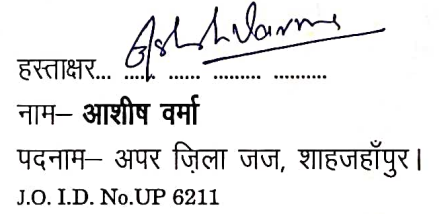 हस्ताक्षर... ...... ...... ......... ..........
नाम– आशीष वर्मा
पदनाम– अपर ज़िला जज, शाहजहाँपुर।
J.O. I.D. No.UP 6211